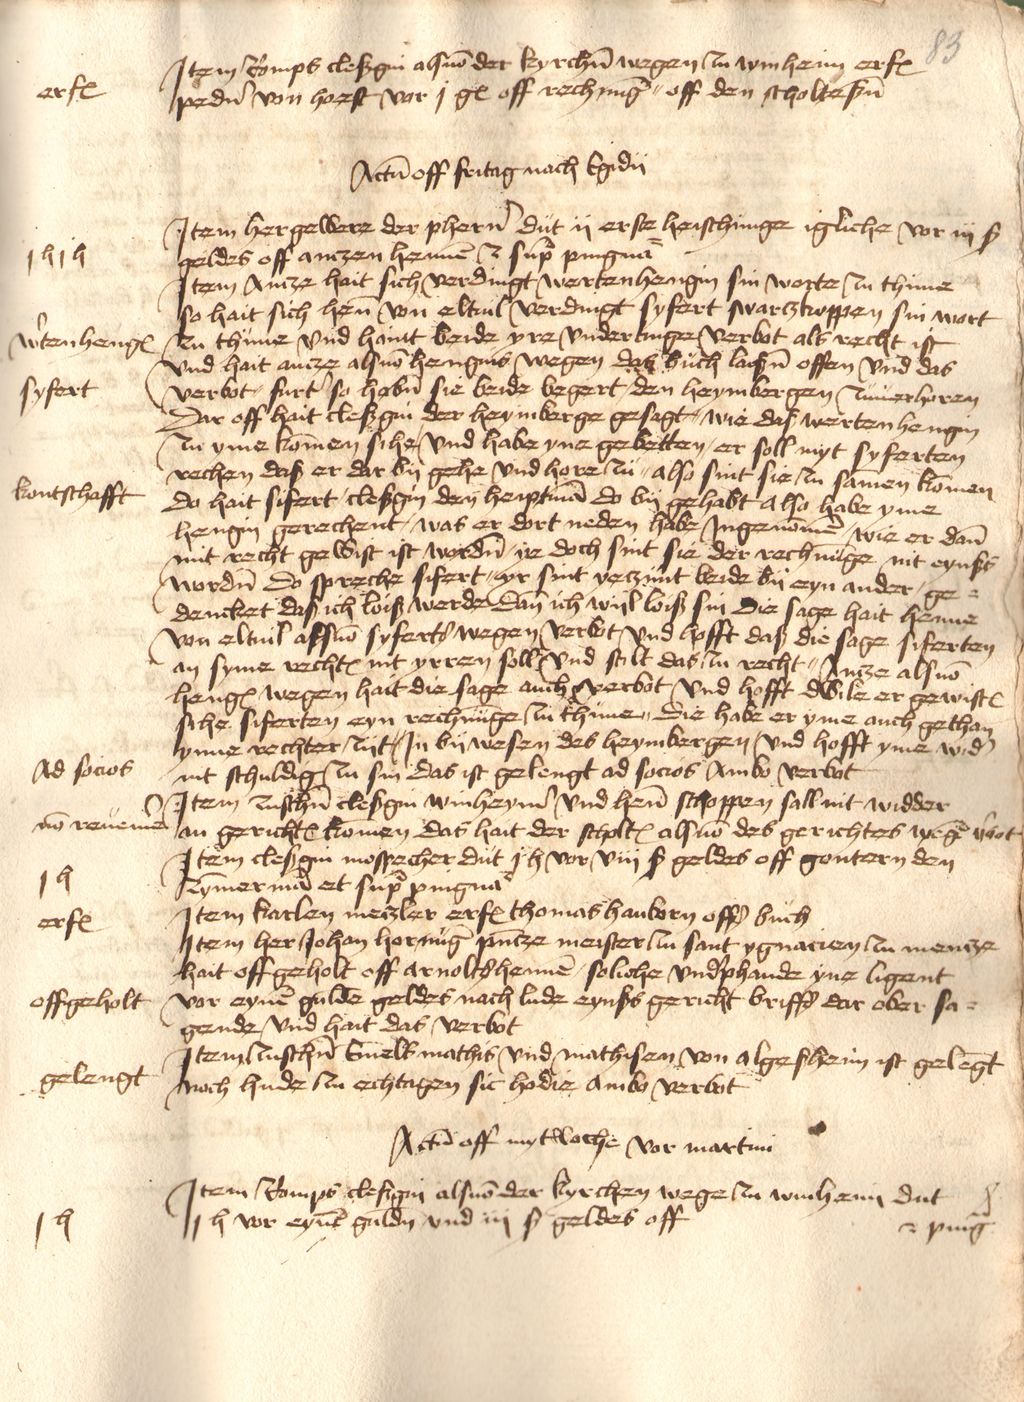 83
Item Romps cleßgin alsuō der kyrchn̄ wegen zu winheim erf
erf
pedn̄ von hoest vor j gl off rechnūg off den scholtesßn̄
Actū off fritag nach Egidii
Item hergewere der pherr̄ dut ij erste heischunge igliche vor iij ß
j h j h
geldes off anczen hennē et sup̄ pingnā
Item Ancze hait sich verdingt wertenhengin sin worte zu thune
so hait sich hen̄ von eltuil verdingt syfert swarczkoppen sin wort
w'tenheng
zu thune vnd haint beide yre vnderdinge verbot als recht ist
vnd hait ancze alsuō hengins wegen daß buch laißn̄ offen vnd das
syfert
verbot furt so habn̄ sie beide begert den heymbergen zuuerhoren
Dar off hait cleßgin der heymberge gesagt wie daß wertenhengin
zu yme komen sihe vnd habe yne gebetten er soll myt syferten
rechen daß er dar by gehe vnd hore zu also sint sie zu samen komen
kontschafft
do hait sifert cleßgin den heiptmā do by gehabt Also habe yme
hengin gerechent was er dort neden habe Ingenomē wie er dan̄
mit recht gewist ist wordn̄ ye doch sint sie der rechnūge nit eynß
wordn̄ Do spreche sifert yr sint yeczunt beide by eyn ander ge=
dencket daß ich loiß werde dan̄ ich wyl loiß sin Die sage hait henne
von eltuil alsuō syferts wegen verbot vnd hofft daß die sage siferten
an syme rechte nit yrren soll vnd stilt das zu recht Ancze alsuō
heng wegen hait die sage auch verbot vnd hofft dwile er gewist
sihe siferten eyn rechnūge zu thune die habe er yme auch gethan
ynne rechter zijt In bywesen des heymbergen vnd hofft yme wid'
Ad socios
nit schuldig zu sin das ist gelengt ad socios Ambo verbot
Item zuschn̄ cleßgin winheym' vnd hen̄ schoppen sall nit widder
nō reuemē
an gericht komen das hait der scholt alsuō des gerichtes wegē v'bot
Item cleßgin mospecher dut j h vor viij ß geldes off gontern den
j h
zymerman̄ et sup̄ pingnā
erf
Item karlen meczler erf thomas hanborn offß buch
Item her Johan hornūg pn̄cze meister zu sant ygnacien zu mencze
hait offgeholt off arnolts hennē soliche vnd'phande yne ligent
offgeholt
vor eynē guldē geldes nach lude eynß gericht briffß dar ober sa=
gende vnd hait das verbot
Item zuschn̄ Snels mathis vnd mathisen von algeßheim ist gelengt
gelengt
noch hude zu echtagen sic hodie Ambo verbot
Actū off mytwoche vor martini
Item Romps cleßgin alsuō der kyrchen wegē zu winheim dut
j h
j h vor eynē guldn̄ vnd iij ß geldes off
et ping